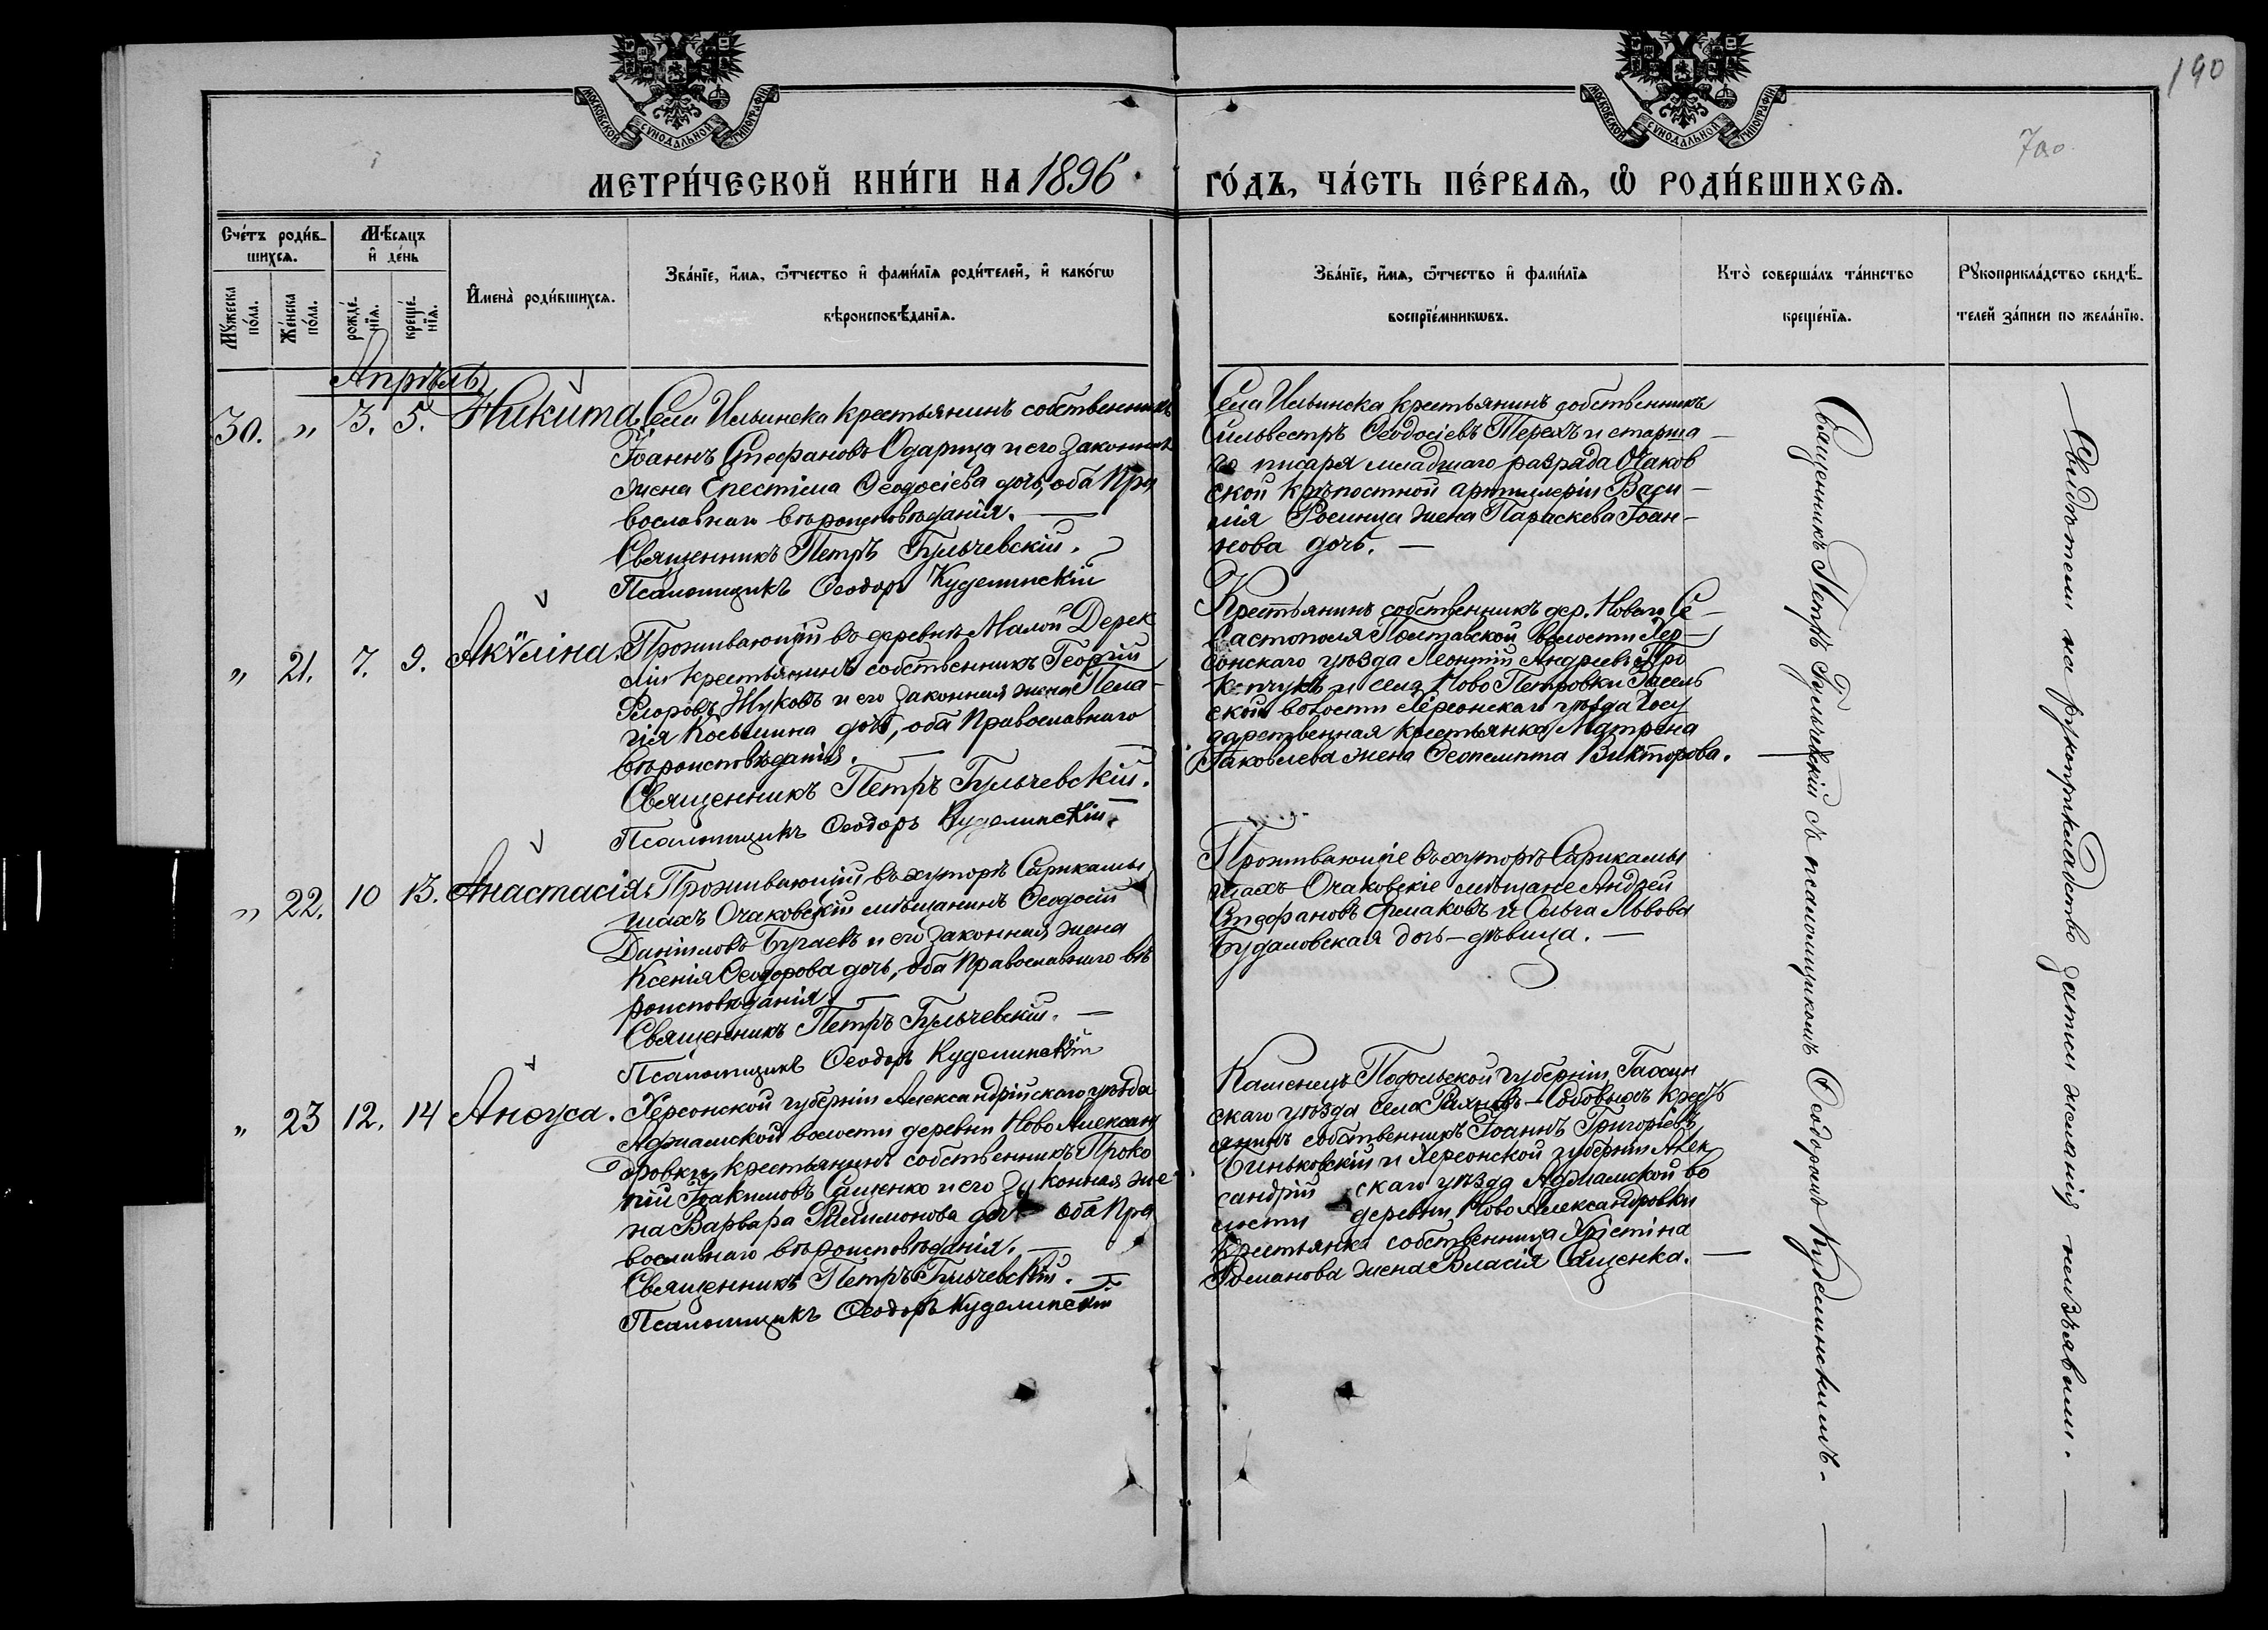 190
700
МОСКОВСКОЙ СѴНОДАЛЬНОЙ ТИПОГРАФІИ
МОСКОВСКОЙ СѴНОДАЛЬНОЙ ТИПОГРАФІИ
МЕТРИ́ЧЕСКОЙ КНИ́ГИ НА 1896 ГО́ДЪ, ЧА́СТЬ ПЕ́РВАѦ, Ѿ РОДИ́ВШИХСѦ.
Сче́тъ роди́в-
шихсѧ.
Мꙋ́жеска
по́ла.
Же́нска
по́ла.
Мѣ́сѧцъ
и҆ де́нь
рожде́-
нїѧ.
креще́-
нїѧ.
И҆мена̀ роди́вшихсѧ.
Зва́нїе, и҆́мѧ, ѻ҆́тчество и҆ фами́лїѧ роди́телей, и҆ како́гѡ
вѣроисповѣ́данїѧ.
Зва́нїе, и҆́мѧ, ѻ҆́тчество и҆ фами́лїѧ
воспрїе́мникѡвъ.
Кто̀ соверша́лъ та́инство
креще́нїѧ.
Рꙋкоприкла́дство свидѣ́-
телей за́писи по жела́нїю.
Апрѣль
30. „ 3. 5. Никита.
Села Ильинска крестьянинъ собственникъ
Іоаннъ Стефановъ Одарица и его законная
жена Епестіма Ѳеодосіева дочь, оба Пра
вославнаго вѣроисповѣданія. —
Священникъ Петръ Бульчевскій.
Псаломщикъ Ѳеодоръ Куделинскій
Села Ильинска крестьянинъ собственникъ
Сильвестръ Ѳеодосіевъ Терехъ и старша—
го писаря младшаго разряда Очаков
ской крѣпостной артиллеріи Васи—
лія жена Параскева Іоан—
нова дочь. —
„ 21. 7. 9. Акѵлина.
Проживающій въ деревнѣ Малой Дерек
лѣ крестьянинъ собственникъ Георгій
Флоровъ Жуковъ и его законная жена Пела—
гія Косьмина дочь, оба Православнаго
вѣроисповѣданія. —
Священникъ Петръ Бульчевскій. —
Псаломщикъ Ѳеодоръ Куделинскій.
Крестьянинъ собственникъ дер. Новаго Се—
вастополя Полтавской волости Хер—
сонскаго уѣзда Леонтій Андреевъ Про
копчукъ и села Ново Петровки Засель
ской волости Херсонскаго уѣзда Госу
дарственная крестьянка Матрона
Іаковлева жена Ѳеопемпта Викторова. —
„ 22. 10 13. Анастасія
Проживающій въ хуторѣ Сарикамы
шахъ Очаковскій мѣщанинъ Ѳеодосій
Даніиловъ Бугаевъ и его законная жена
Ксенія Ѳеодорова дочь, оба Православнаго вѣ
роисповѣданія. —
Священникъ Петръ Бульчевскій. —
Псаломщикъ Ѳеодоръ Куделинскій
Проживающіе въ хуторѣ Сарикамы
шахъ Очаковскіе мѣщане Андрей
Стефановъ Ермаковъ и Ольга Львова
Будаловская дочь — дѣвица. —
„ 23 12. 14 Анѳуса.
Херсонской губерніи Александрійскаго уѣзда
Аджамской волости деревни Ново Алексан
дровки крестьянинъ собственникъ Проко
пій Іоакимовъ Саценко и его законная же
на Варвара Филимонова дочь оба Пра
вославнаго вѣроисповѣданія. —
Священникъ Петръ Бульчевскій. —
Псаломщикъ Ѳеодоръ Куделинскій
Каменецъ Подольской губерніи Гайсин
скаго уѣзда села кресть
янинъ собственникъ Іоаннъ Григоріевъ
Биньковскій и Херсонской губерніи Алек
сандрій скаго уѣзда Аджамской во
лости деревни Ново Александровки
крестьянка собственница Христина
Романова жена Власія Саценка. —
Священникъ Петръ Бульчевскій съ псаломщикомъ Ѳеодоромъ Куделинскимъ. —
Свидѣтели на рукоприкладство записи желанія не изъявили. —